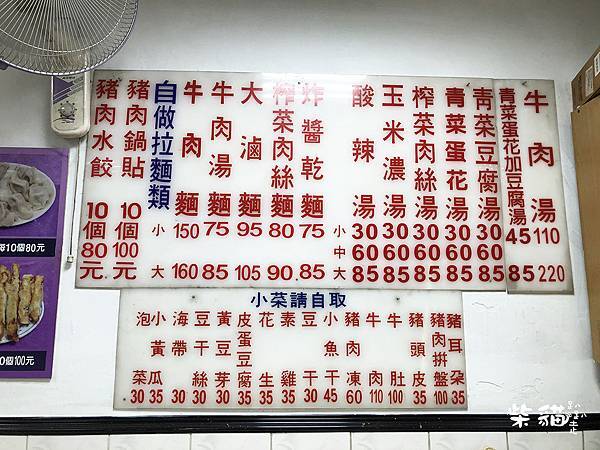 豬肉水餃 10個80元
豬肉鍋貼 10個100元
自做拉麵類
小 大
牛肉麵 150 160
牛肉湯麵 75 85
大滷麵 95 105
榨菜肉絲麵 80 90
炸醬乾麵 75 85
小 中 大
酸辣湯 30 60 85
玉米濃湯 30 60 85
榨菜肉絲湯 30 60 85
青菜蛋花湯 30 60 85
青菜豆腐湯 30 60 85
青菜蛋花加豆腐湯 45 85
牛肉湯 110 220
小菜請自取
泡菜 30
小黃瓜 35
海帶 30
豆干絲 30
黃豆芽 30
皮蛋豆腐 35
花生 30
素雞 35
豆干 30
小魚干 45
豬肉凍 60
牛肉 110
牛肚 100
豬頭皮 35
豬肉拼盤 100
豬耳朵 35
每10個80元
0個100元
柴貓